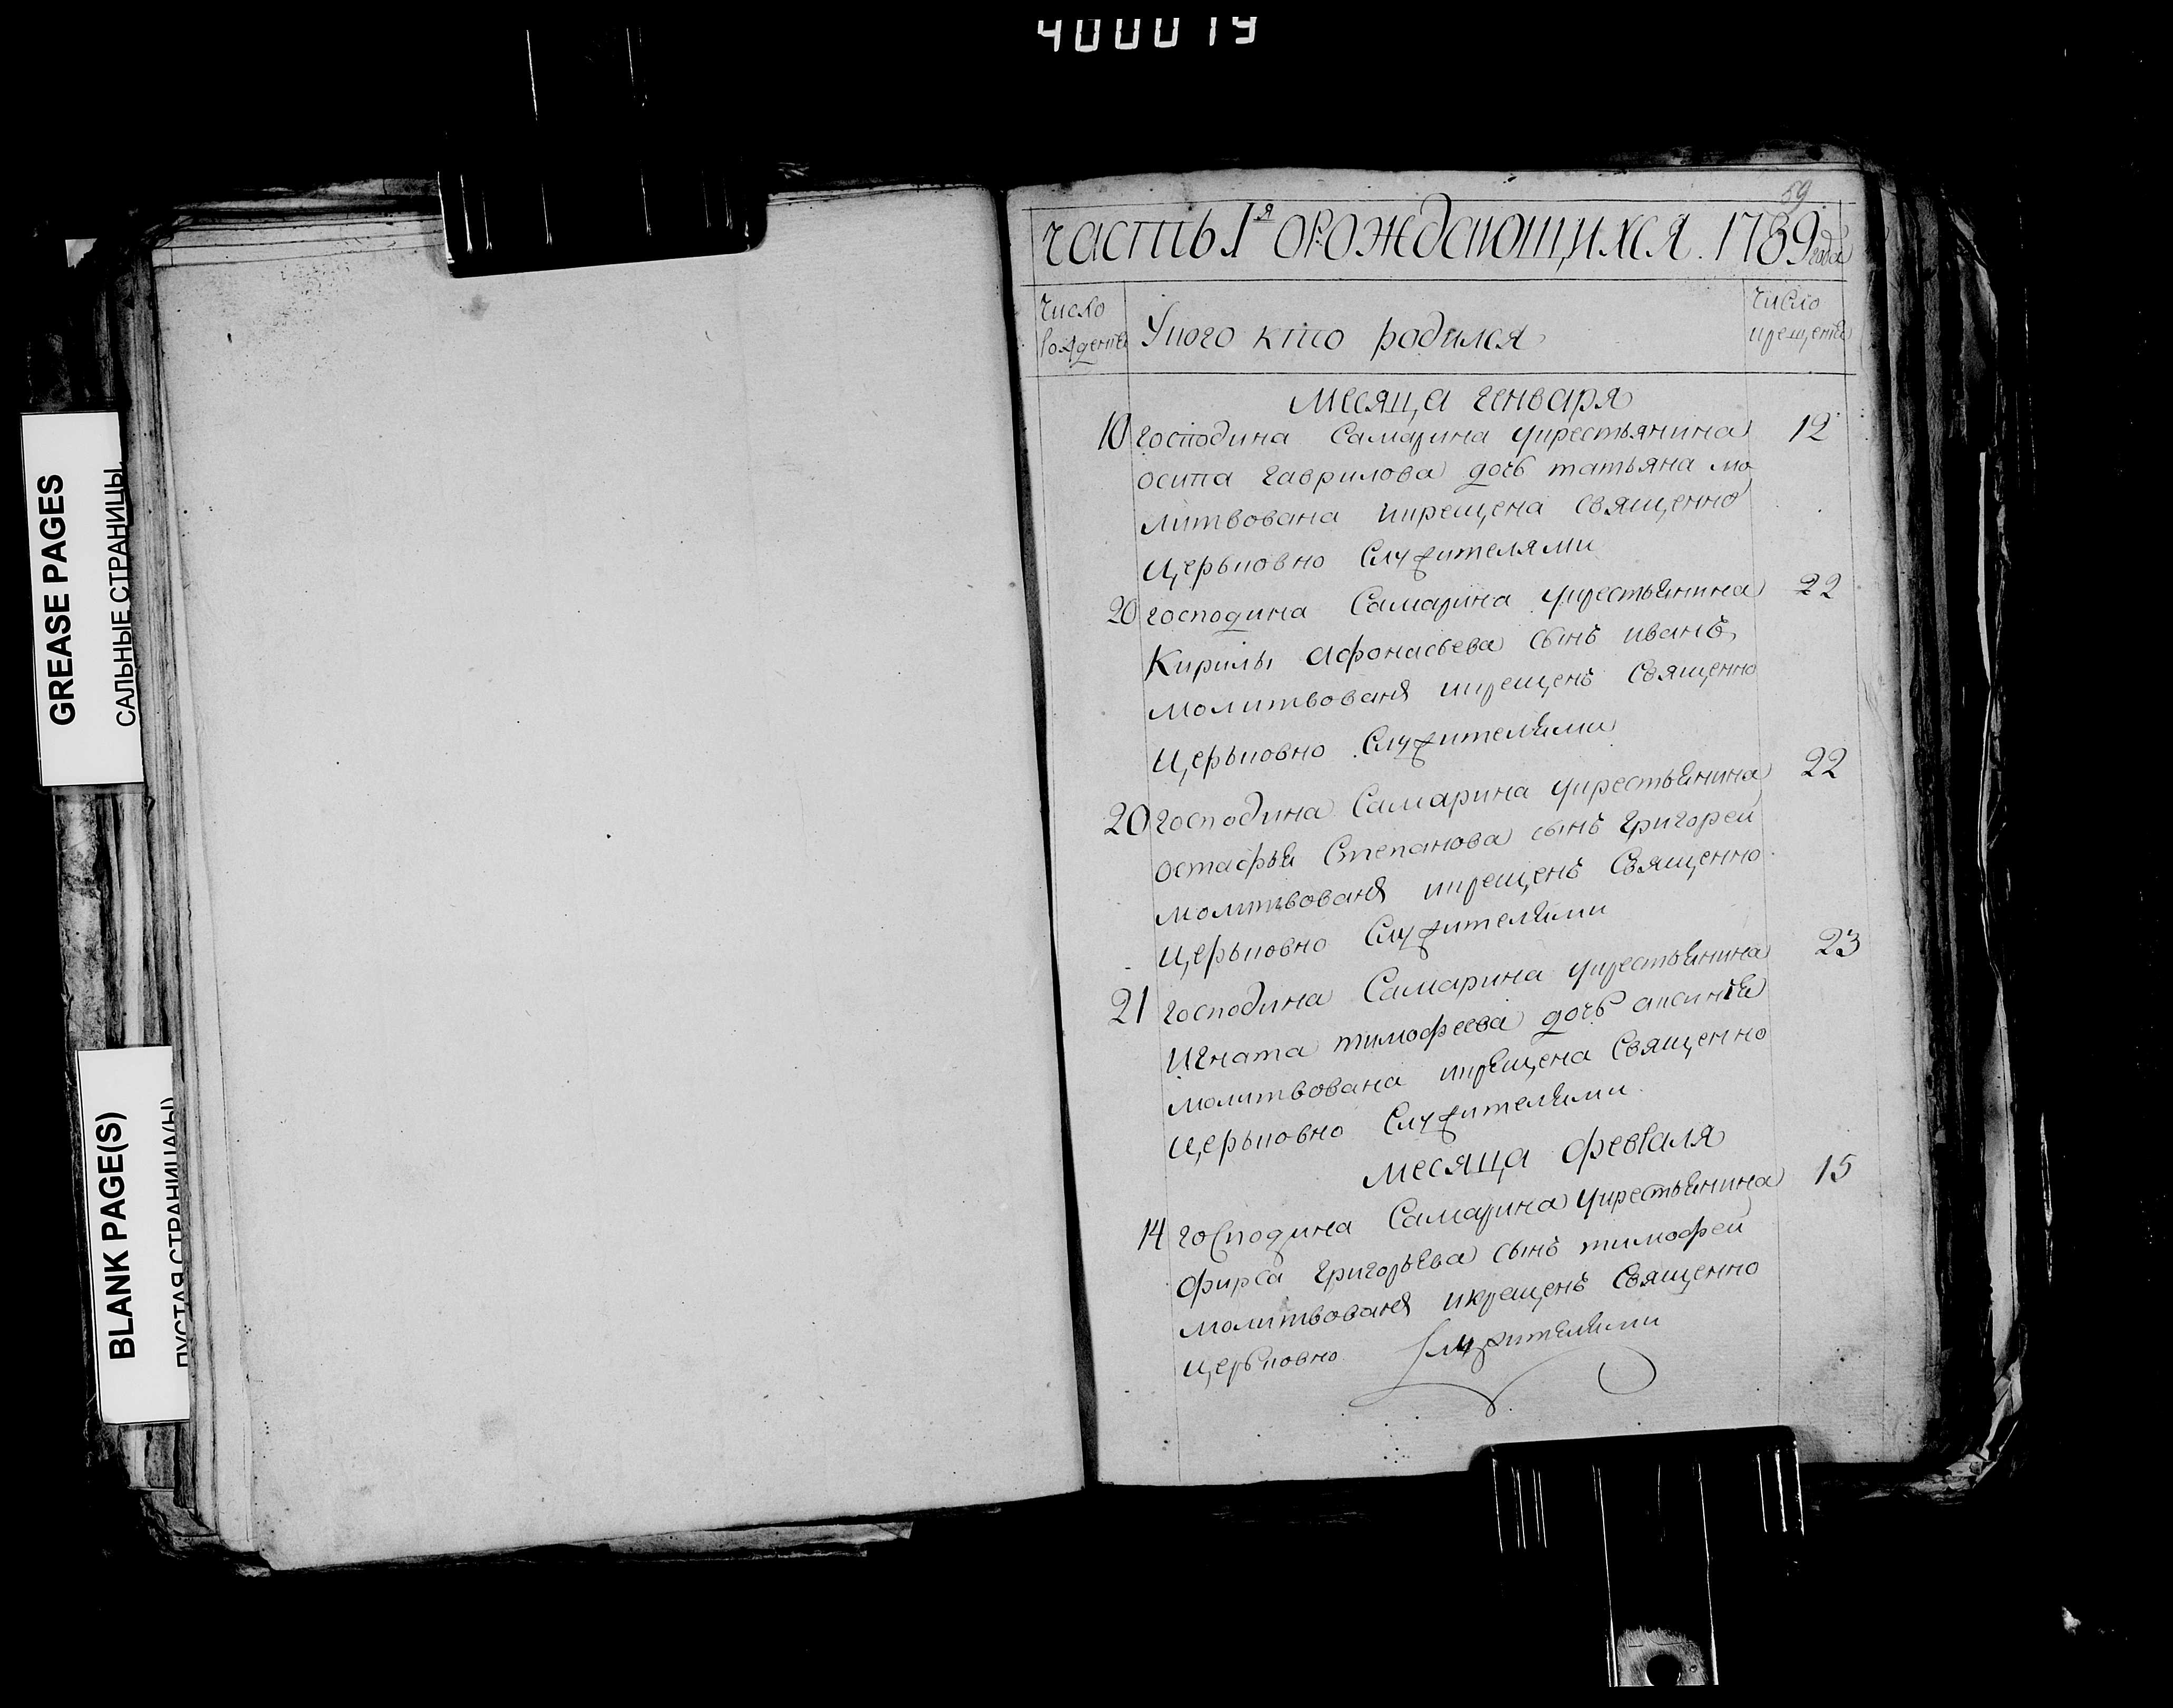 400019
GREASE PAGES
САЛЬНЫЕ СТРАНИЦЫ
BLANK PAGE(S)
ПУСТАЯ СТРАНИЦА(Ы)
59
часть Iя орождающихся. 1789 года
число рожденія
Укого кто родился
число крещенія
месяца генваря
10 господина Самарина укрестьянина 12
осипа гаврилова дочь татьяна мо
литвована икрещена священно
церьковно служителями
20 господина Самарина укрестьянина 22
Кирилы афонасьева сынъ иванъ
молитвованъ икрещенъ священно
церьковно служителями
20 господина Самарина укрестьянина 22
остафья Степанова сынъ григорей
молитвованъ икрещенъ Священно
церьковно Служителями
21 господина Самарина укрестьянина 23
Игната тимофеева дочь аксинія
молитвована икрещена Священно
церьковно Служителями
месяца февраля
14 господина Самарина укрестьянина 15
фирса григорьева сынъ тимофей
молитвованъ икрещенъ Священно
церьковно Служителями